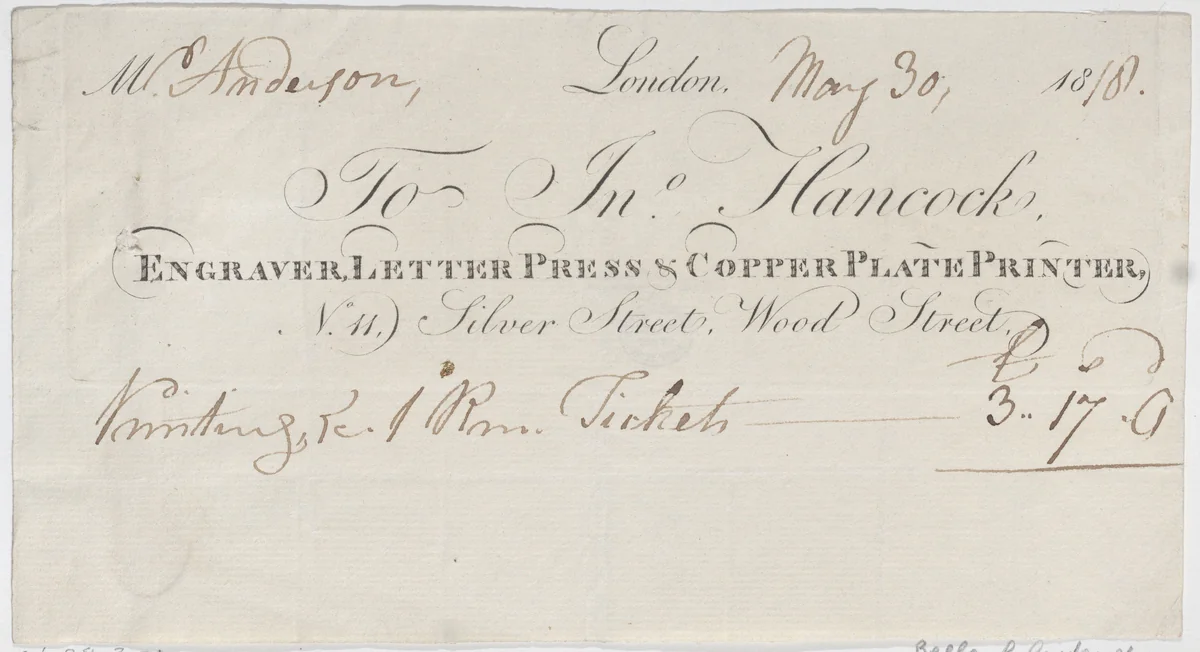 Mr. Anderson, London, May 30, 1818.
To Jno. Hancock,
ENGRAVER, LETTER PRESS & COPPER PLATE PRINTER,
No. 11, Silver Street, Wood Street,
£ s d
Printing, &c. 1 Rm. Tickets 3 .. 17 .